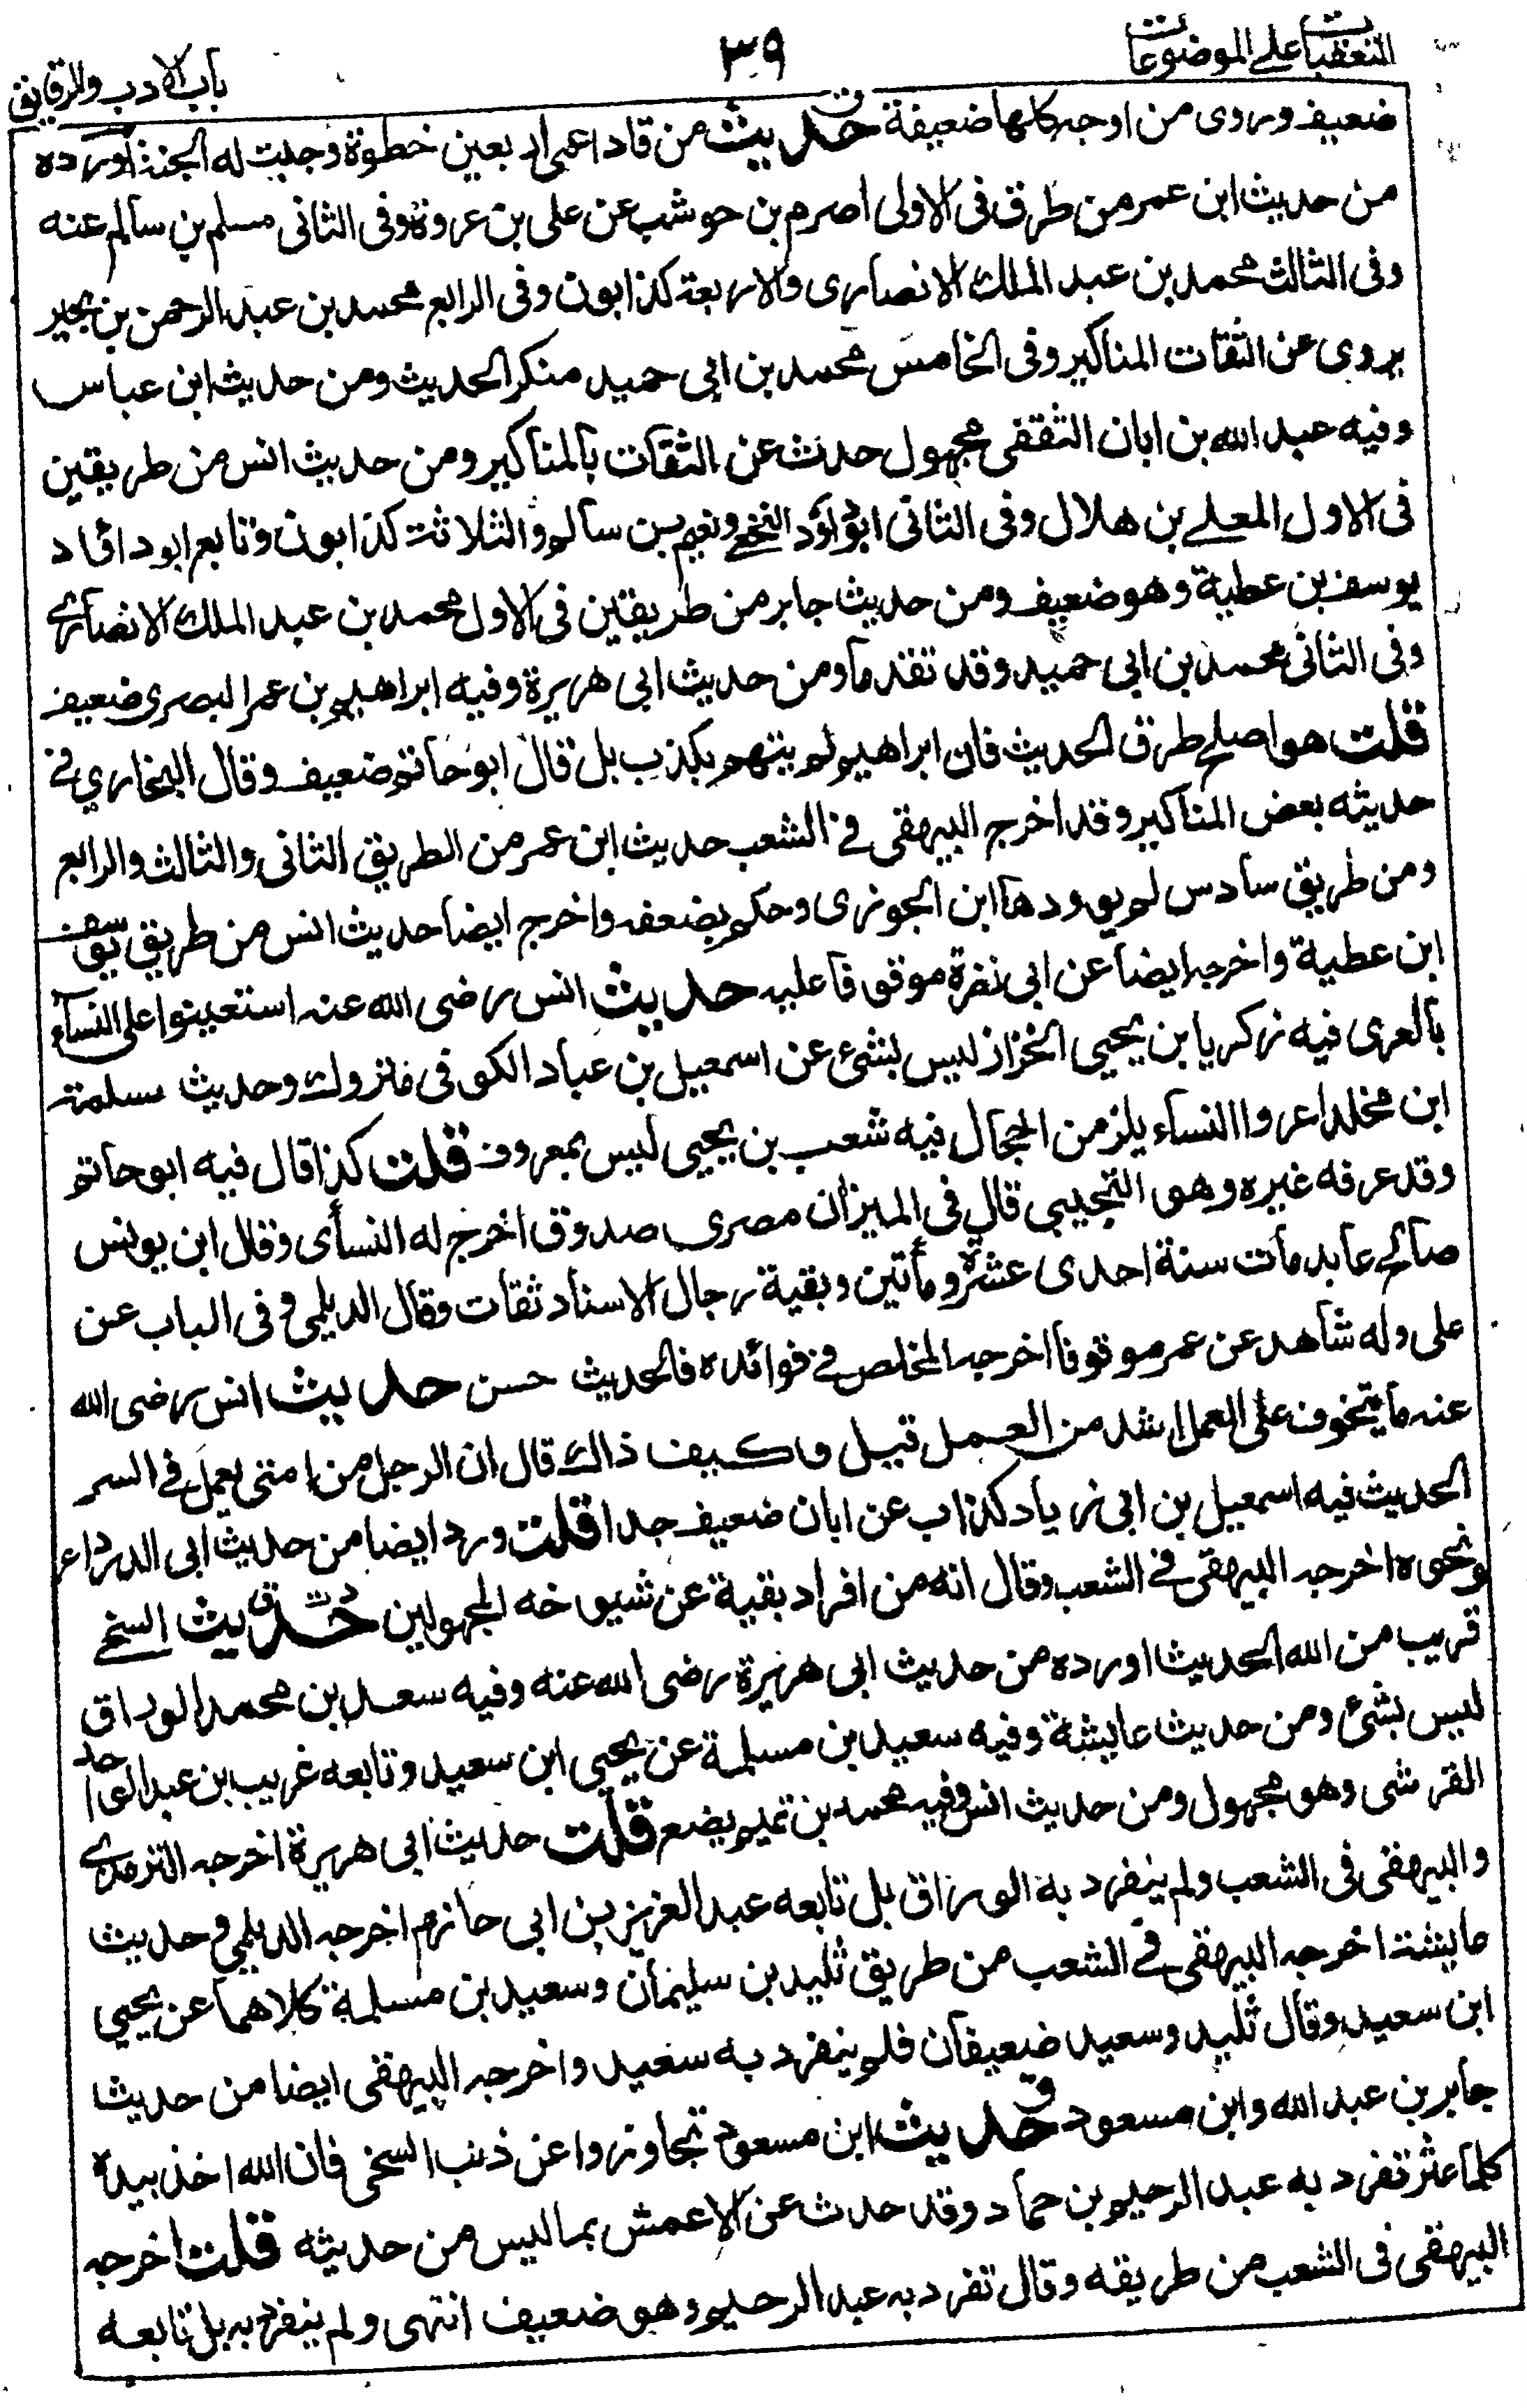 التعقبات على الموضوعات
٣٩
باب الادب والرقايق
ضعيف وروى من اوجه كلها ضعيفة حديث من قاد اعمى اربعين خطوة وجبت له الجنة اورده
من حديث ابن عمر من طرق فى الاولى اصرم بن حوشب عن على بن عروة وفى الثانى مسلم بن سالم عنه
وفى الثالث محمد بن عبد الملك الانصارى والاربعة كذابون وفى الرابع محمد بن عبد الرحمن بن بجير
يروى عن الثقات المناكير وفى الخامس محمد بن ابى حميد منكر الحديث ومن حديث ابن عباس
وفيه عبد الله بن ابان الثقفى مجهول حدث عن الثقات بالمناكير ومن حديث انس من طريقين
فى الاول المعلى بن هلال وفى الثانى ابوداؤد النخعى ونعيم بن سالم والثلاثة كذابون وتابع ابوداؤد
يوسف بن عطية وهو ضعيف ومن حديث جابر من طريقين فى الاول محمد بن عبد الملك الانصارى
وفى الثانى محمد بن ابى حميد وقد تقدما ومن حديث ابى هريرة وفيه ابراهيم بن عمر البصرى ضعيف
قلت هو اصلح طرق الحديث فان ابراهيم لم يتهم بكذب بل قال ابو حاتم ضعيف وقال البخاري فى
حديثه بعض المناكير وقد اخرج البيهقى فى الشعب حديث ابن عمر من الطريق الثانى والثالث والرابع
ومن طريق سادس لم يوردها ابن الجوزى وحكم بضعفه واخرج ايضا حديث انس من طريق يوسف
ابن عطية واخرجه ايضا عن ابى نفرة موقوفا عليه حديث انس رضى الله عنه استعينوا على النساء
بالعرى فيه زكريا بن يحيى الخزاز ليس بشئ عن اسمعيل بن عباد الكوفى متروك وحديث مسلمة
ابن مخلد اعروا النساء يلزمن الحجال فيه شعيب بن يحيى ليس بمعروف قلت كذا قال فيه ابو حاتم
وقد عرفه غيره وهو التجيبى قال فى الميزان مصرى صدوق اخرج له النسأى وقال ابن يونس
صالح عابد مات سنة احدى عشرة ومأتين وبقية رجال الاسناد ثقات وقال الديلمى وفى الباب عن
على وله شاهد عن عمر موقوفا اخرجه المخلص فى فوائده فالحديث حسن حديث انس رضى الله
عنه ما يتخوف على العمل اشد من العمل قيل وكيف ذالك قال ان الرجل من امتى يعمل فى السر
الحديث فيه اسمعيل بن ابى زياد كذاب عن ابان ضعيف جدا قلت ورد ايضا من حديث ابى الدرداء
ونحوه اخرجه البيهقى فى الشعب وقال انه من افراد بقية عن شيوخه المجهولين حديث السخى
قريب من الله الحديث اورده من حديث ابى هريرة رضى الله عنه وفيه سعد بن محمد الوراق
ليس بشئ ومن حديث عايشة وفيه سعيد بن مسلمة عن يحيى ابن سعيد وتابعه غريب بن عبد الواحد
القرشى وهو مجهول ومن حديث انس وفيه محمد بن تميم يضع قلت حديث ابى هريرة اخرجه الترمذى
والبيهقى فى الشعب ولم ينفرد به الوراق بل تابعه عبد العزيز بن ابى حازم اخرجه الديلمى وحديث
عايشة اخرجه البيهقى فى الشعب من طريق تليد بن سليمان وسعيد بن مسلمة كلاهما عن يحيى
ابن سعيد وقال تليد وسعيد ضعيفان فلم ينفرد به سعيد واخرجه البيهقى ايضا من حديث
جابر بن عبد الله وابن مسعود حديث ابن مسعود تجاوزوا عن ذنب السخى فان الله اخذ بيده
كلما عثر تفرد به عبد الرحيم بن حماد وقد حدث عن الاعمش بما ليس من حديثه قلت اخرجه
البيهقى فى الشعب من طريقه وقال تفرد به عبد الرحيم وهو ضعيف انتهى ولم ينفرد به بل تابعه